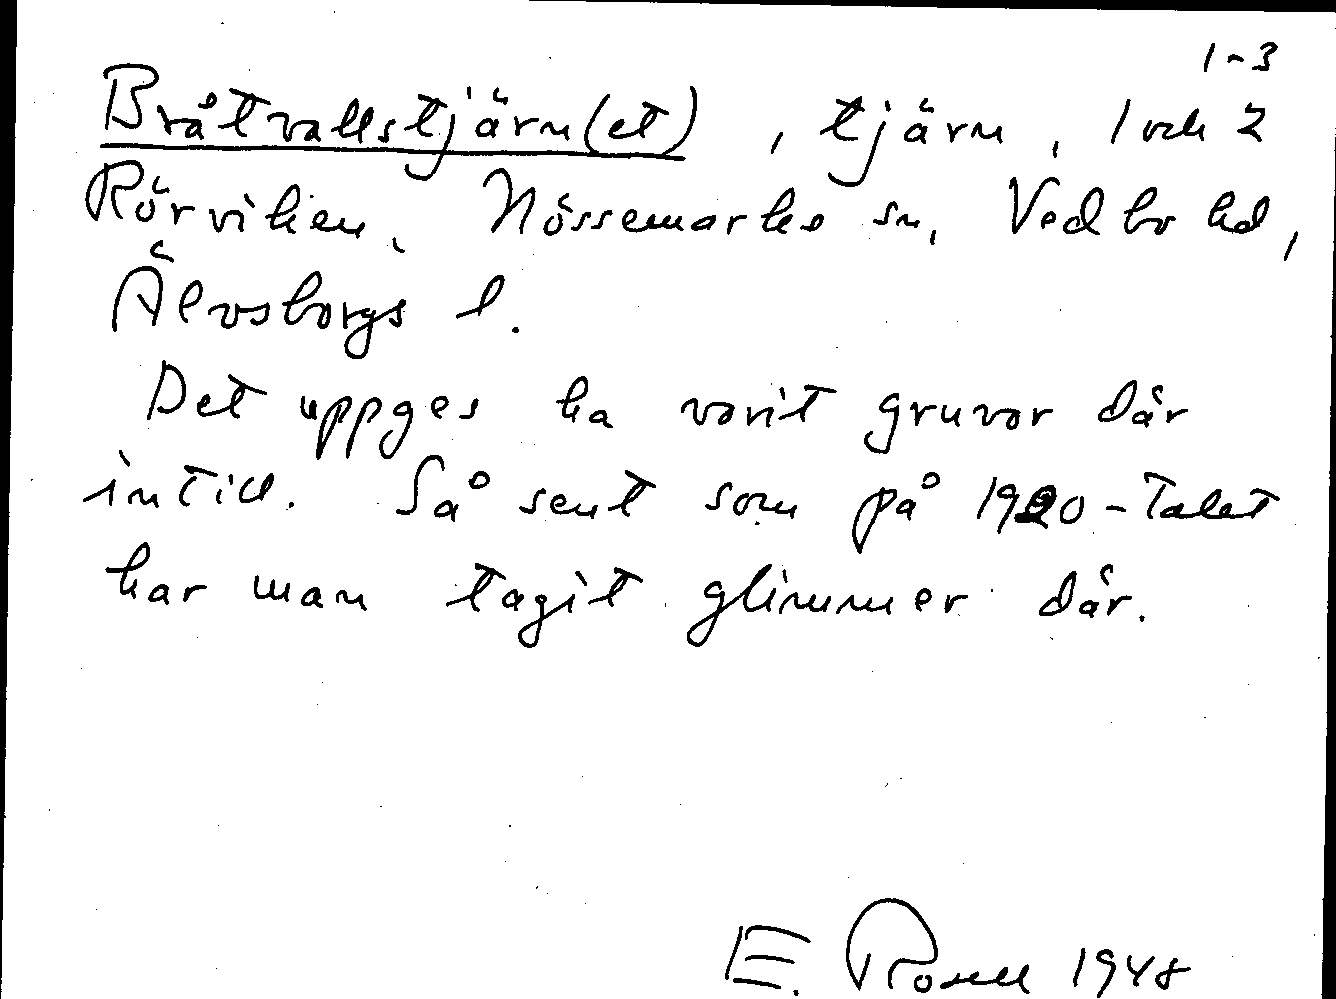 1-3
Bråtvallstjärn(et), tjärn, 1 och 2
Rörviken, Nössemarks sn, Vedbo hd,
Älvsborgs l.
Det uppges ha varit gruvor där
intill. Så sent som på 1920-talet
har man tagit glimmer där.
E. Rosell 1948